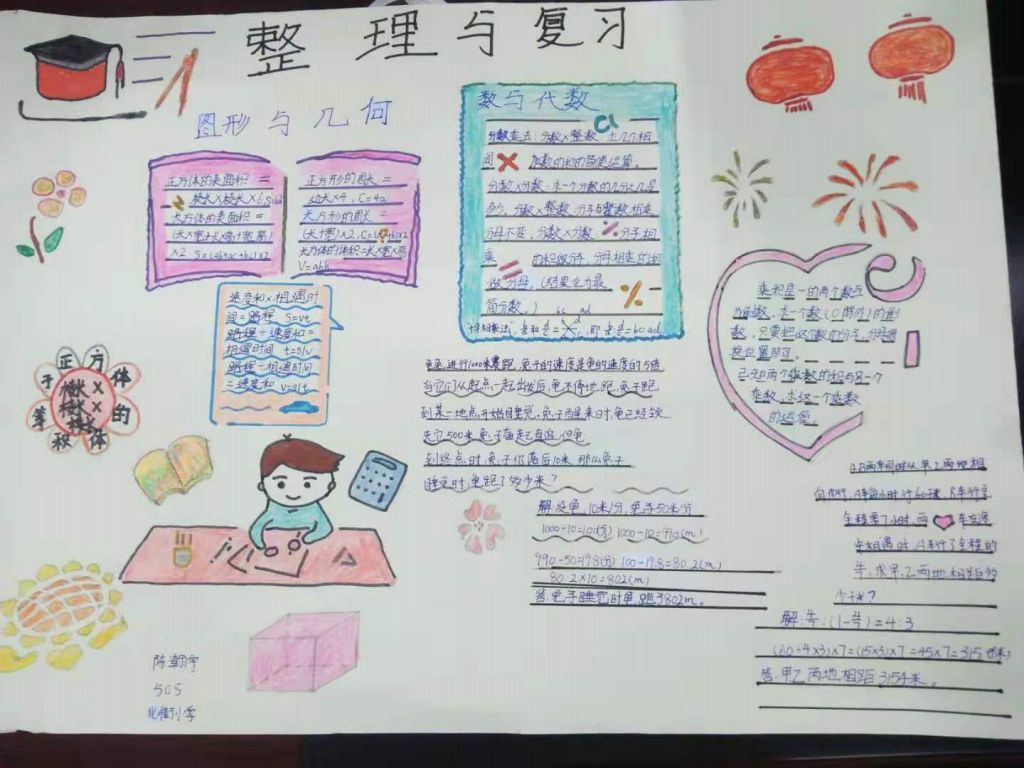 整理与复习
图形与几何
正方体的表面积 =
棱长×棱长×6,S=6a²
长方体的表面积 =
(长×宽+长×高+宽×高)
×2 S=(ab+ac+bc)×2
正方形的周长 =
边长×4, C=4a
长方形的周长 =
(长+宽)×2, C=(a+b)×2
长方体的体积=长×宽×高
V=abh
数与代数
分数乘法:分数×整数:求几个相
同 加数的和的简便运算。
分数×分数:求一个分数的几分之几是
多少, 分数×整数:分子与整数相乘
分母不变, 分数×分数: 分子相
乘 的积做分子, 分母相乘的积
做分母, (结果化为最
简分数。)
速度和×相遇时
间=路程 S=vt
路程÷速度和=
相遇时间 t=s/v
路程÷相遇时间
=速度和 v=s/t
乘积是一的两个数互
为倒数, 求一个数(0除外)的倒
数, 只要把这个数的分子、分母调
换位置即可。
已知两个乘数的积与另一个
乘数, 求这一个乘数
的运算。
正方体的
体积等于
棱长×
棱长×
棱长
龟兔进行1000米赛跑, 兔子的速度是龟的速度的5倍
当它们从起点一起出发后, 龟不停地跑, 兔子跑
到某一地点开始睡觉, 兔子西醒来时, 龟已经领
先它500米 兔子奋起直追, 但龟
到终点时, 兔子仍落后10米 那么兔子
睡觉时, 龟跑了多少米?
解:设龟 10米/分, 兔子50米/分
1000÷10=100(分) 1000-10=990(m)
990÷50=19.8(分) 100-19.8=80.2(m)
80.2×10=802(m)
答:兔子睡觉时龟跑了802m。
A.B两车同时从甲乙两地相
向而行, A车每小时行60千米, B车行完
全程需7小时, 两 车在途
中相遇时, A车行了全程的
求甲、乙两地相距多
少千米?
=4:3
(60÷4×3)×7=(15×3)×7=45×7=315
答:甲乙两地相距315千米。
陈潮宇
505